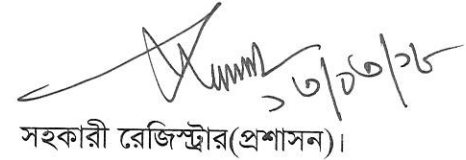 ১৩/০৩/১৮
সহকারী রেজিস্ট্রার(প্রশাসন)।